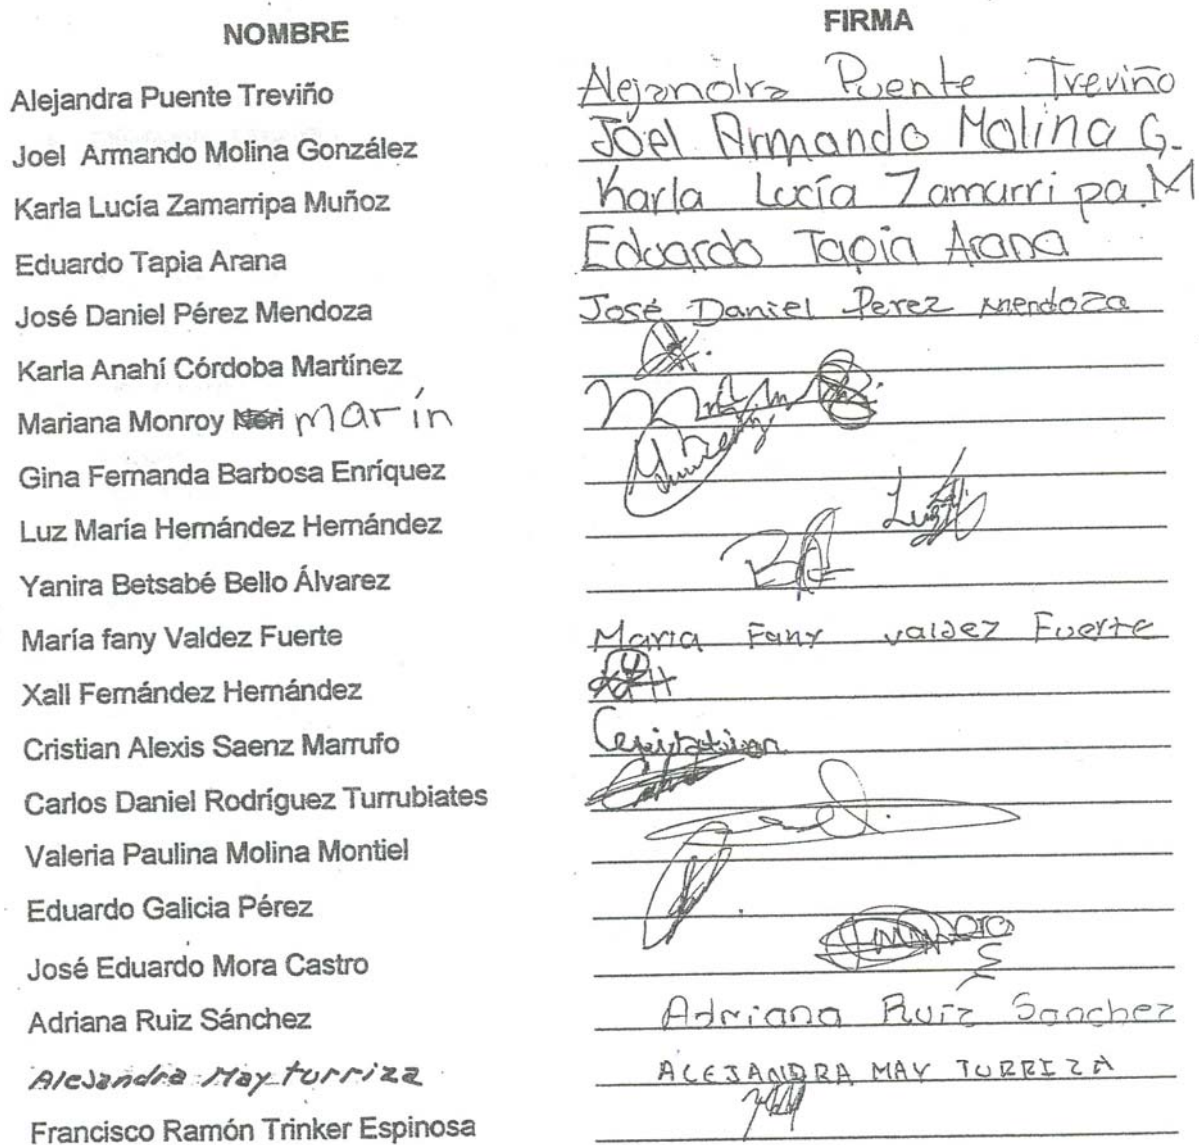 NOMBRE FIRMA
Alejandra Puente Treviño Alejandra Puente Treviño
Joel Armando Molina González Joel Armando Molina G.
Karla Lucía Zamarripa Muñoz Karla Lucía Zamarripa.M
Eduardo Tapia Arana Eduardo Tapia Arana
José Daniel Pérez Mendoza José Daniel Perez Mendoza
Karla Anahí Córdoba Martínez
Mariana Monroy Neri Marín
Gina Fernanda Barbosa Enríquez
Luz María Hernández Hernández Luz
Yanira Betsabé Bello Álvarez
María fany Valdez Fuerte Maria Fany Valdez Fuerte
Xall Fernández Hernández
Cristian Alexis Saenz Marrufo
Carlos Daniel Rodríguez Turrubiates
Valeria Paulina Molina Montiel
Eduardo Galicia Pérez
José Eduardo Mora Castro
Adriana Ruiz Sánchez Adriana Ruiz Sanchez
Alejandra May turriza ALEJANDRA MAY TURRIZA
Francisco Ramón Trinker Espinosa